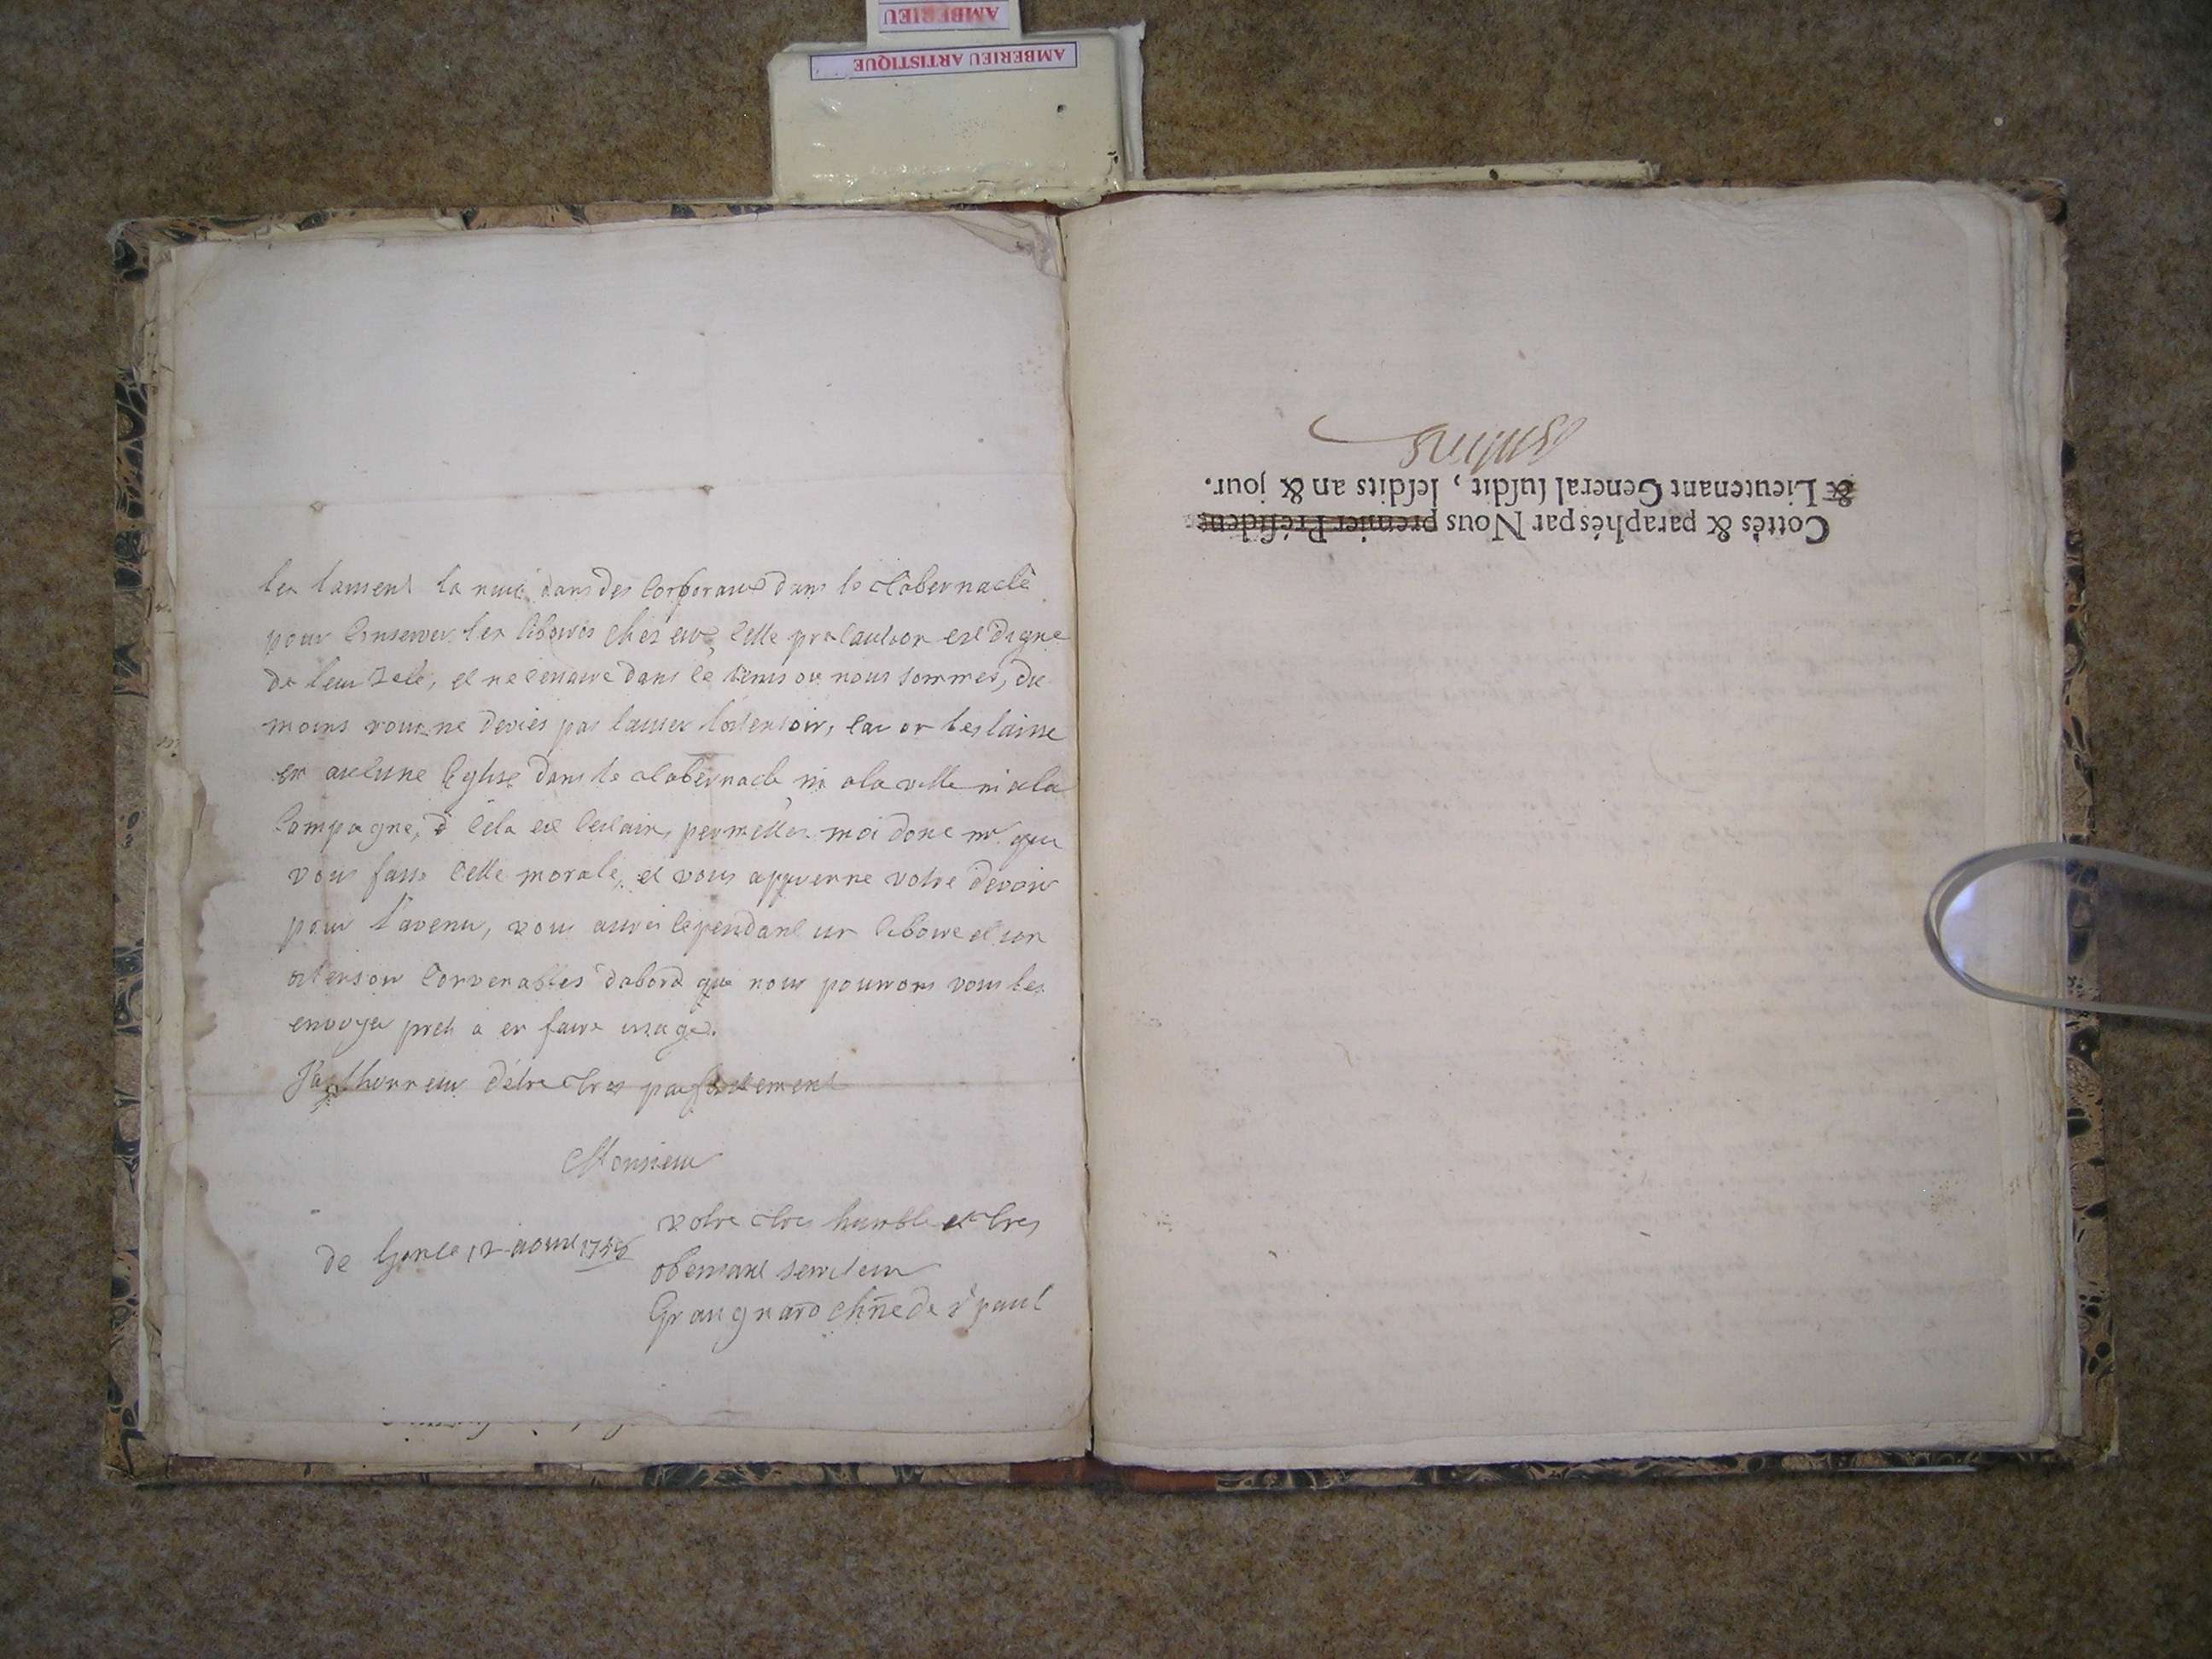 AMBERIEU
AMBERIEU ARTISTIQUE
les laissent la nuit dans des corporaux dans le tabernacle
pour conserver les ciboires ches eux, cette precaution est digne
de leur zele, et necessaire dans le tems ou nous sommes, du
moins vous ne devies pas laisser lostensoir, car on les laisse
en aucune Eglise dans le tabernacle ni a la ville ni a la
Campagne, cela est permettes moi donc mr que
vous fasse cette morale, et vous apprenne votre devoir
pour l'avenir, vous aures cependant un ciboire et un
ostensoir convenables dabord que nous pourrons vous les
envoyer prets a en faire usage.
J'ay lhonneur d'etre tres parfaitement
Monsieur
votre tres humble et tres
de 12 aoust
obeissant serviteur
chñe de st paul
Cottés & paraphés par Nous premier Président
& Lieutenant General ſuſdit, leſdits an & jour.